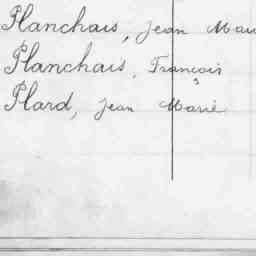 Planchais, Jean Mari
Planchais, François
Plard, Jean Marie